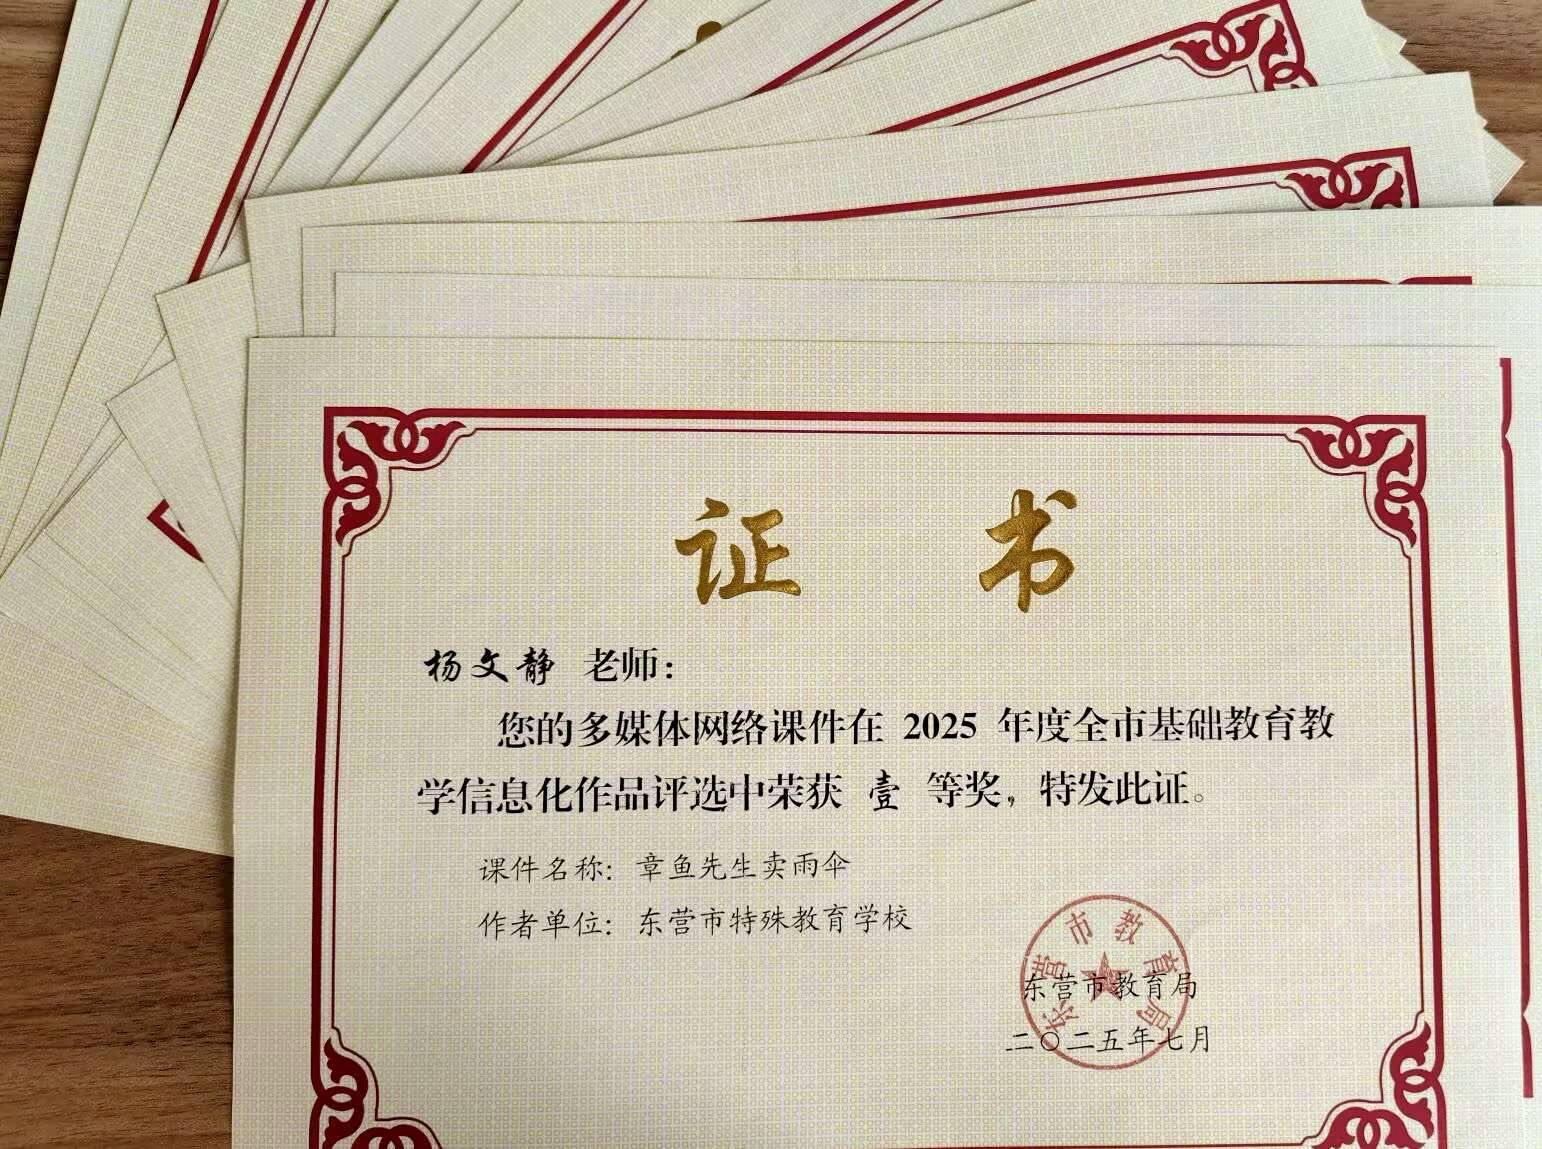 证书
杨文静 老师：
您的多媒体网络课件在 2025 年度全市基础教育教
学信息化作品评选中荣获 壹 等奖，特发此证。
课件名称：章鱼先生卖雨伞
作者单位：东营市特殊教育学校
东营市教育局
东营市教育局
二〇二五年七月